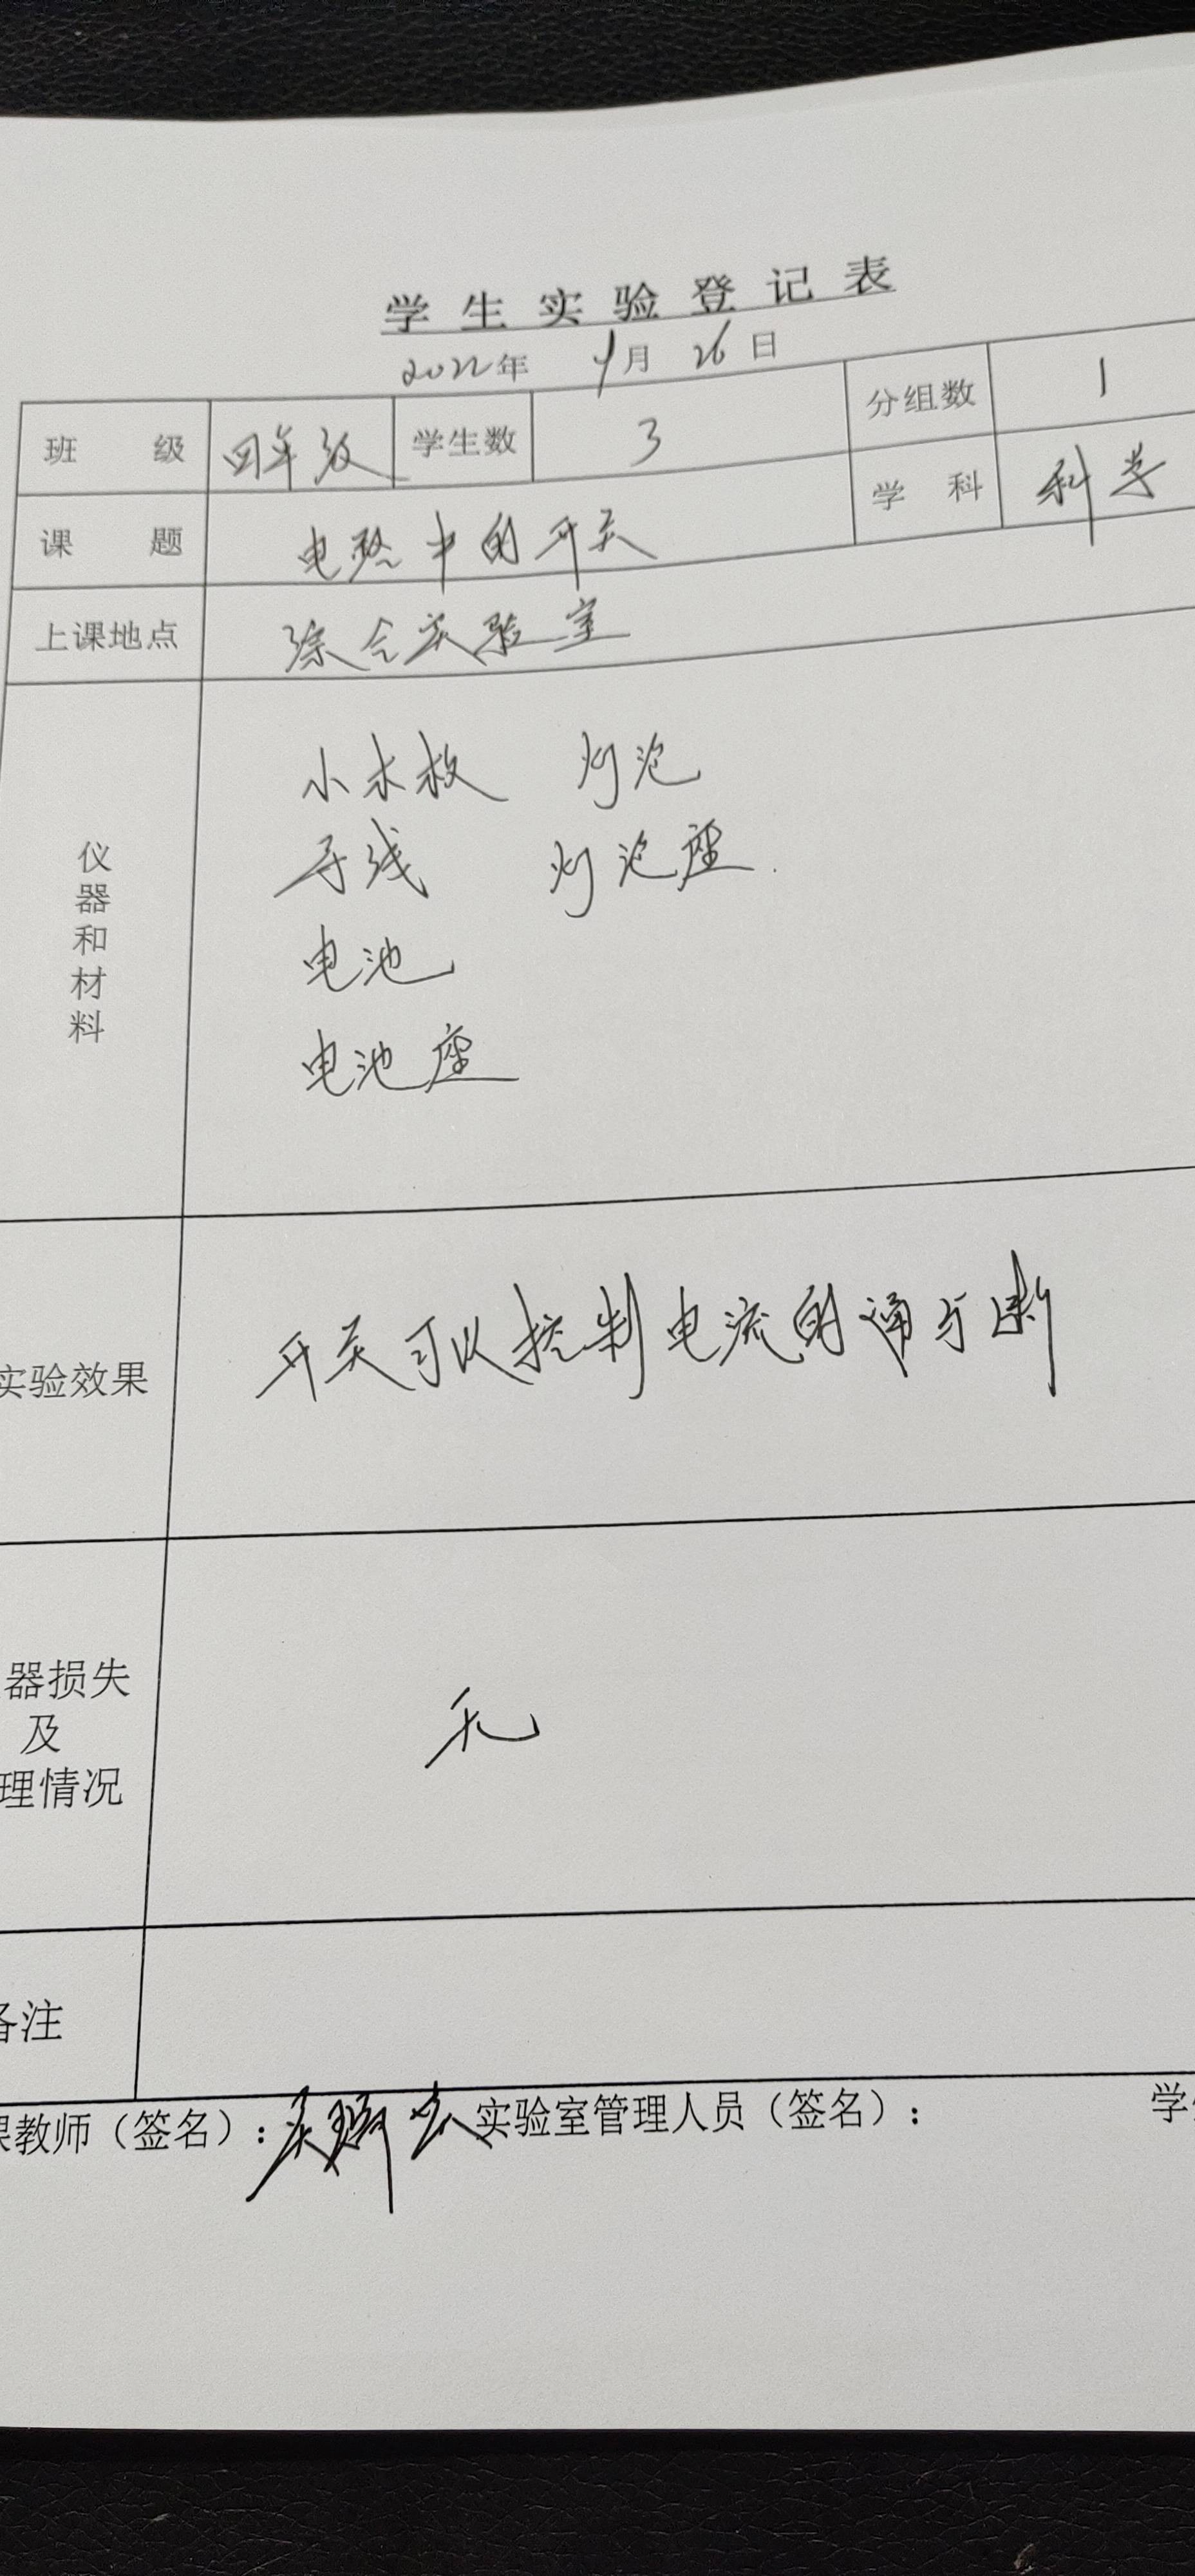 学生实验登记表
2022年 9月 26日
班 级 四年级 学生数 3 分组数 1
课 题 电路中的开关 学 科 科学
上课地点 综合实验室
仪器和材料
小木板 灯泡
导线 灯泡座
电池
电池座
实验效果 开关可以控制电流的通与断
器损失
及
理情况
无
备注
课教师（签名）： 实验室管理人员（签名）： 学